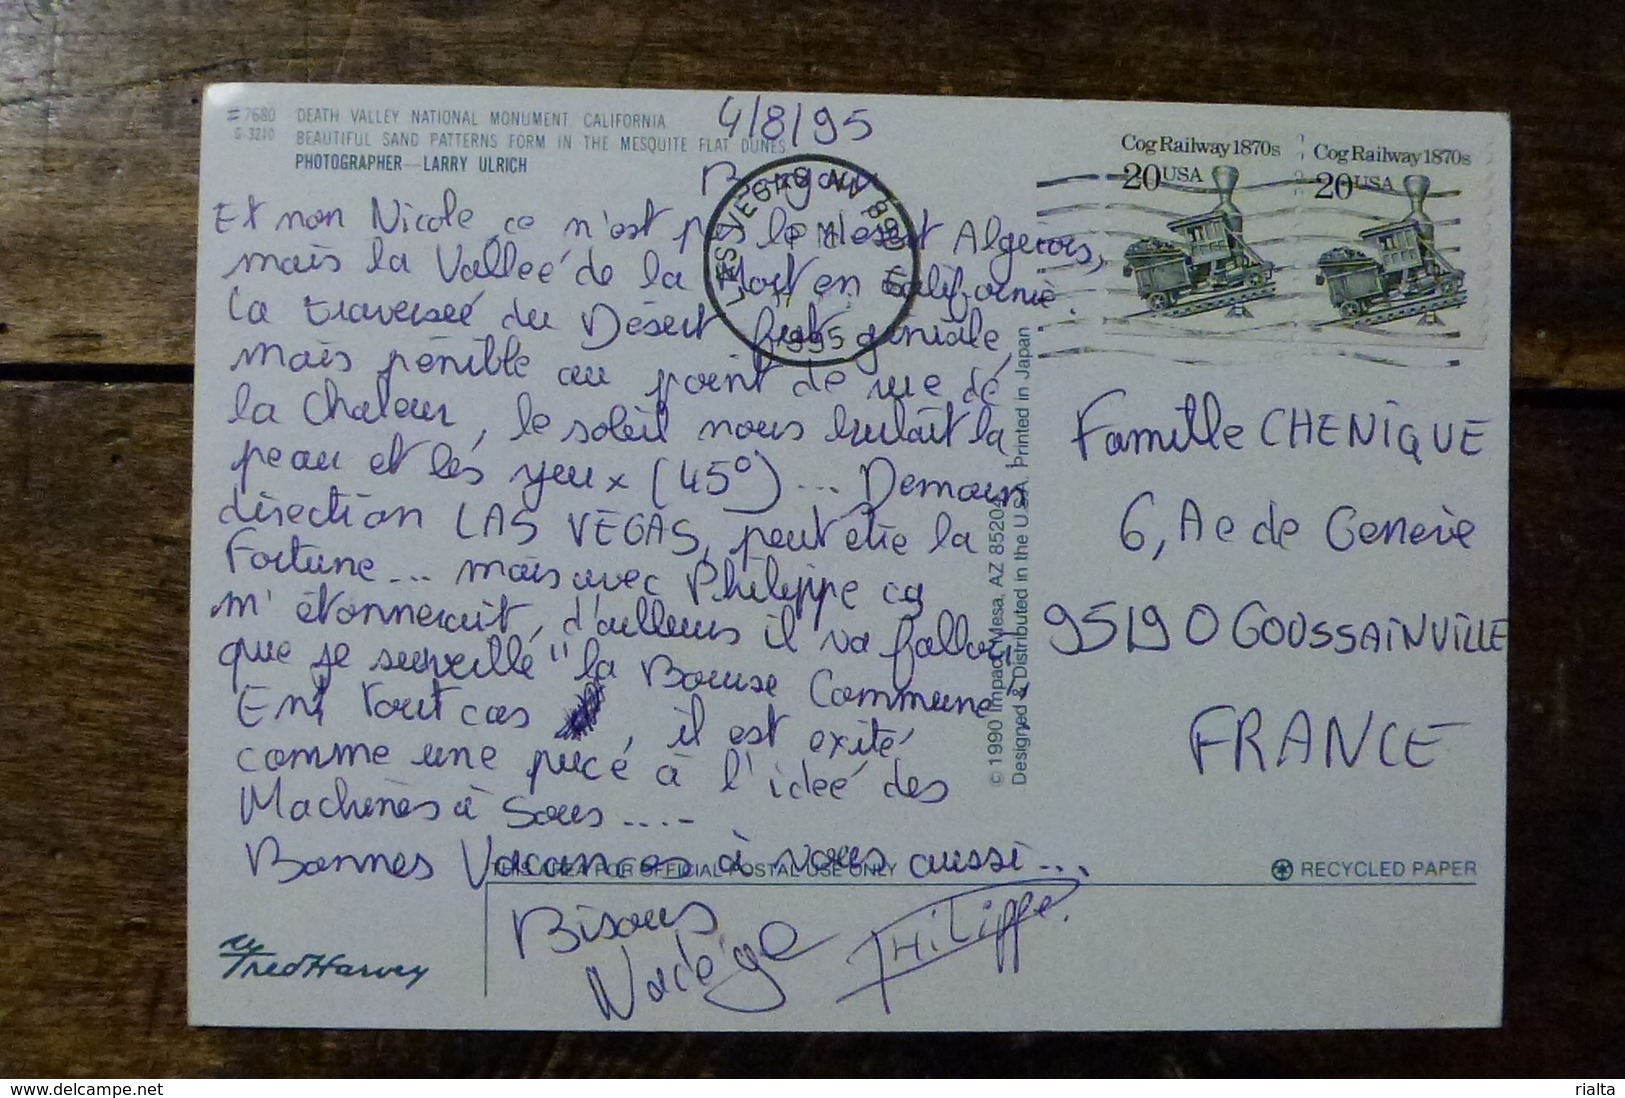 # 7680 DEATH VALLEY NATIONAL MONUMENT, CALIFORNIA
G-3210 BEAUTIFUL SAND PATTERNS FORM IN THE MESQUITE FLAT DUNES
PHOTOGRAPHER—LARRY ULRICH
4/8/95
Bonjour
Et non Nicole, ce n'est pas le désert Algerois,
mais la Vallée de la Mort en Californie.
La traversée du Désert fut géniale,
mais pénible au point de vue de
la chaleur, le soleil nous brulait la
peau et les yeux (45°)... Demain
direction LAS VEGAS, peut être la
Fortune... mais avec Philippe ça
m'étonnerait, d'ailleurs il va falloir
que je surveille "la Bourse Commune"
Ent tout cas , il est exité
comme une puce à l'idée des
Machines à Sous....
Bonnes Vacances à vous aussi...
Bisous
Nadège
PHiLippe.
LAS VEGAS NV
1995
Cog Railway 1870s
20 USA
Cog Railway 1870s
20 USA
Famille CHENIQUE
6, Ae de Geneve
95190 GOUSSAiNViLLE
FRANCE
© 1990 Impact, Mesa, AZ 85204
Designed & Distributed in the U.S.A. Printed in Japan
THIS AREA FOR OFFICIAL POSTAL USE ONLY
RECYCLED PAPER
Fred Harvey
www.delcampe.net
rialta